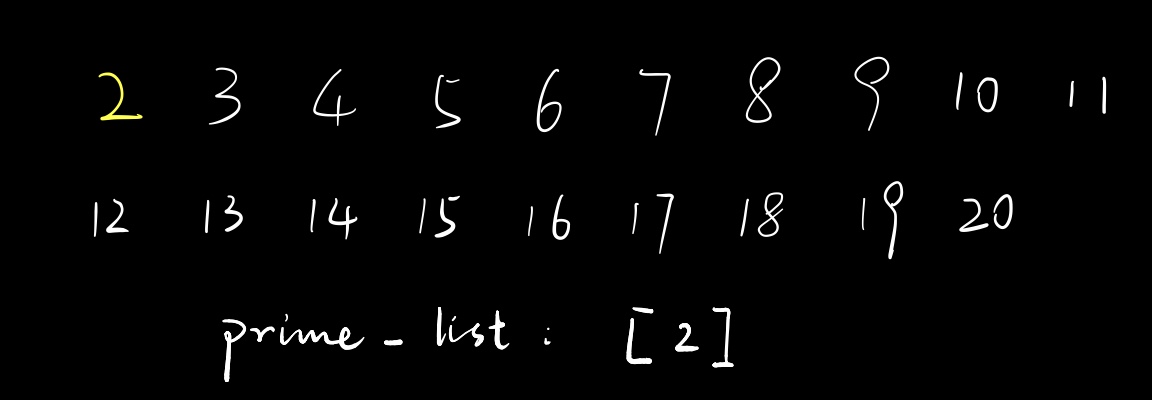 2 3 4 5 6 7 8 9 10 11
12 13 14 15 16 17 18 19 20
prime_list: [2]